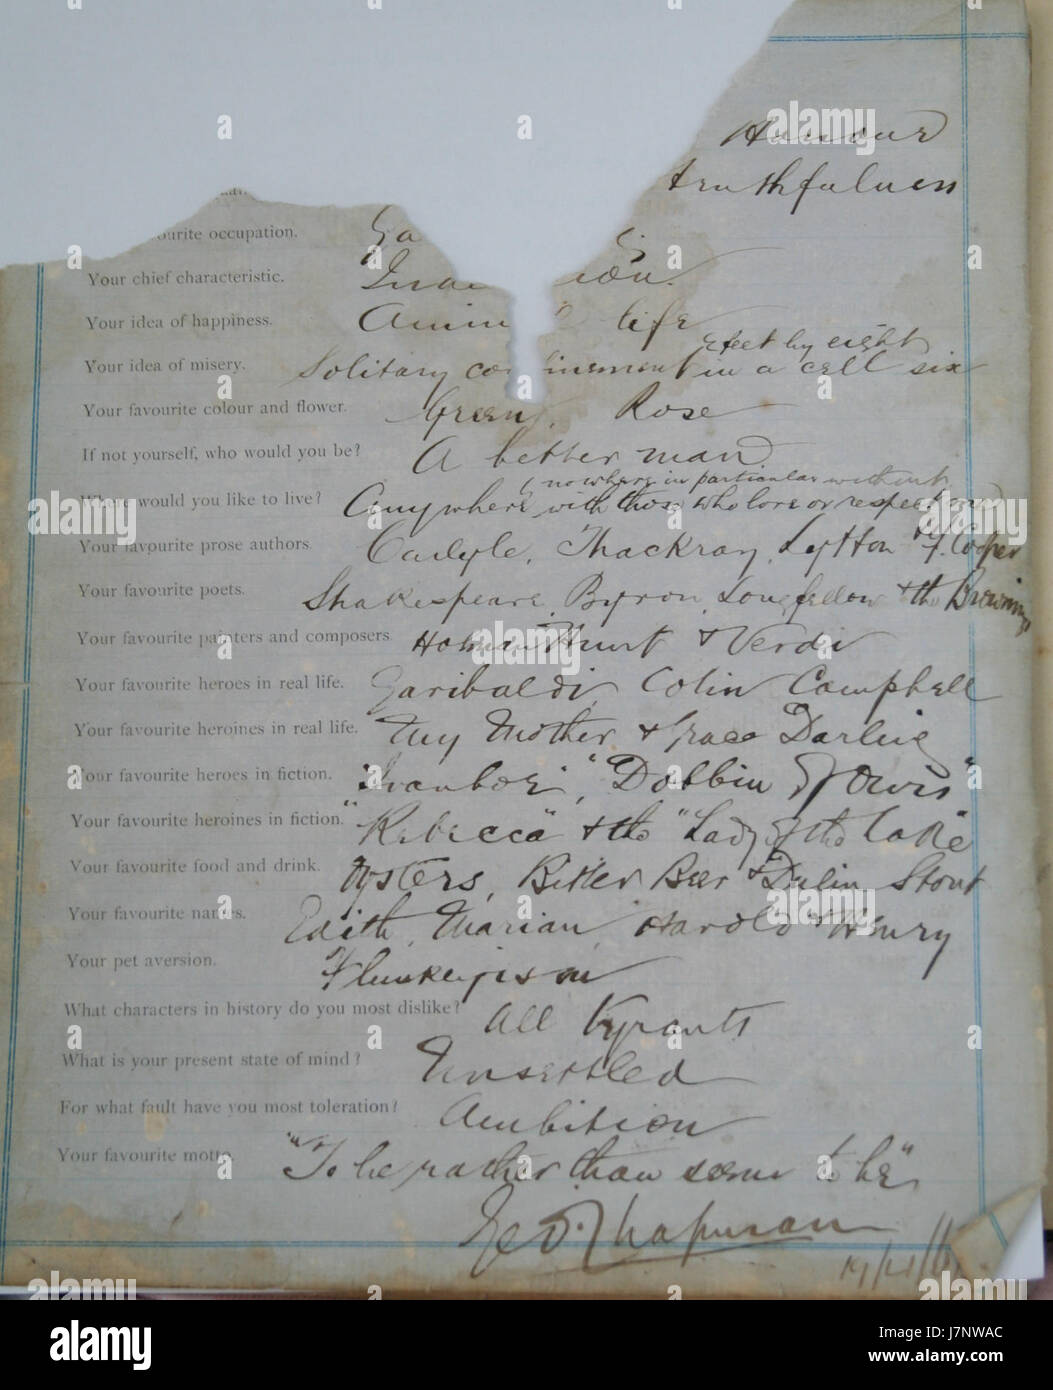 Honour
truthfulness
ourite occupation.
Your chief characteristic.
Your idea of happiness. life
Your idea of misery. Solitary confinement in a cell six feet by eight
Your favourite colour and flower. Green, Rose
If not yourself, who would you be? A better man
Where would you like to live? Anywhere with those who love or respect me, nowhere in particular without
Your favourite prose authors. Carlyle, Thackray, Lytton & F. Cooper
Your favourite poets. Shakespeare, Byron, Longfellow & the Brownings
Your favourite painters and composers. Holman Hunt & Verdi
Your favourite heroes in real life. Garibaldi, Colin Campbell
Your favourite heroines in real life. My Mother & Grace Darling
Your favourite heroes in fiction. "Dobbin
Your favourite heroines in fiction. "Rebecca" & the "Lady of the Lake"
Your favourite food and drink. Oysters, Bitter Beer & Dublin Stout
Your favourite names. Edith, Marian, Harold & Henry
Your pet aversion. Flunkeyism
What characters in history do you most dislike? All Tyrants
What is your present state of mind? Unsettled
For what fault have you most toleration? Ambition
Your favourite motto. "To be rather than seem to be"
Geo. Chapman
alamy
Image ID: J7NWAC
www.alamy.com